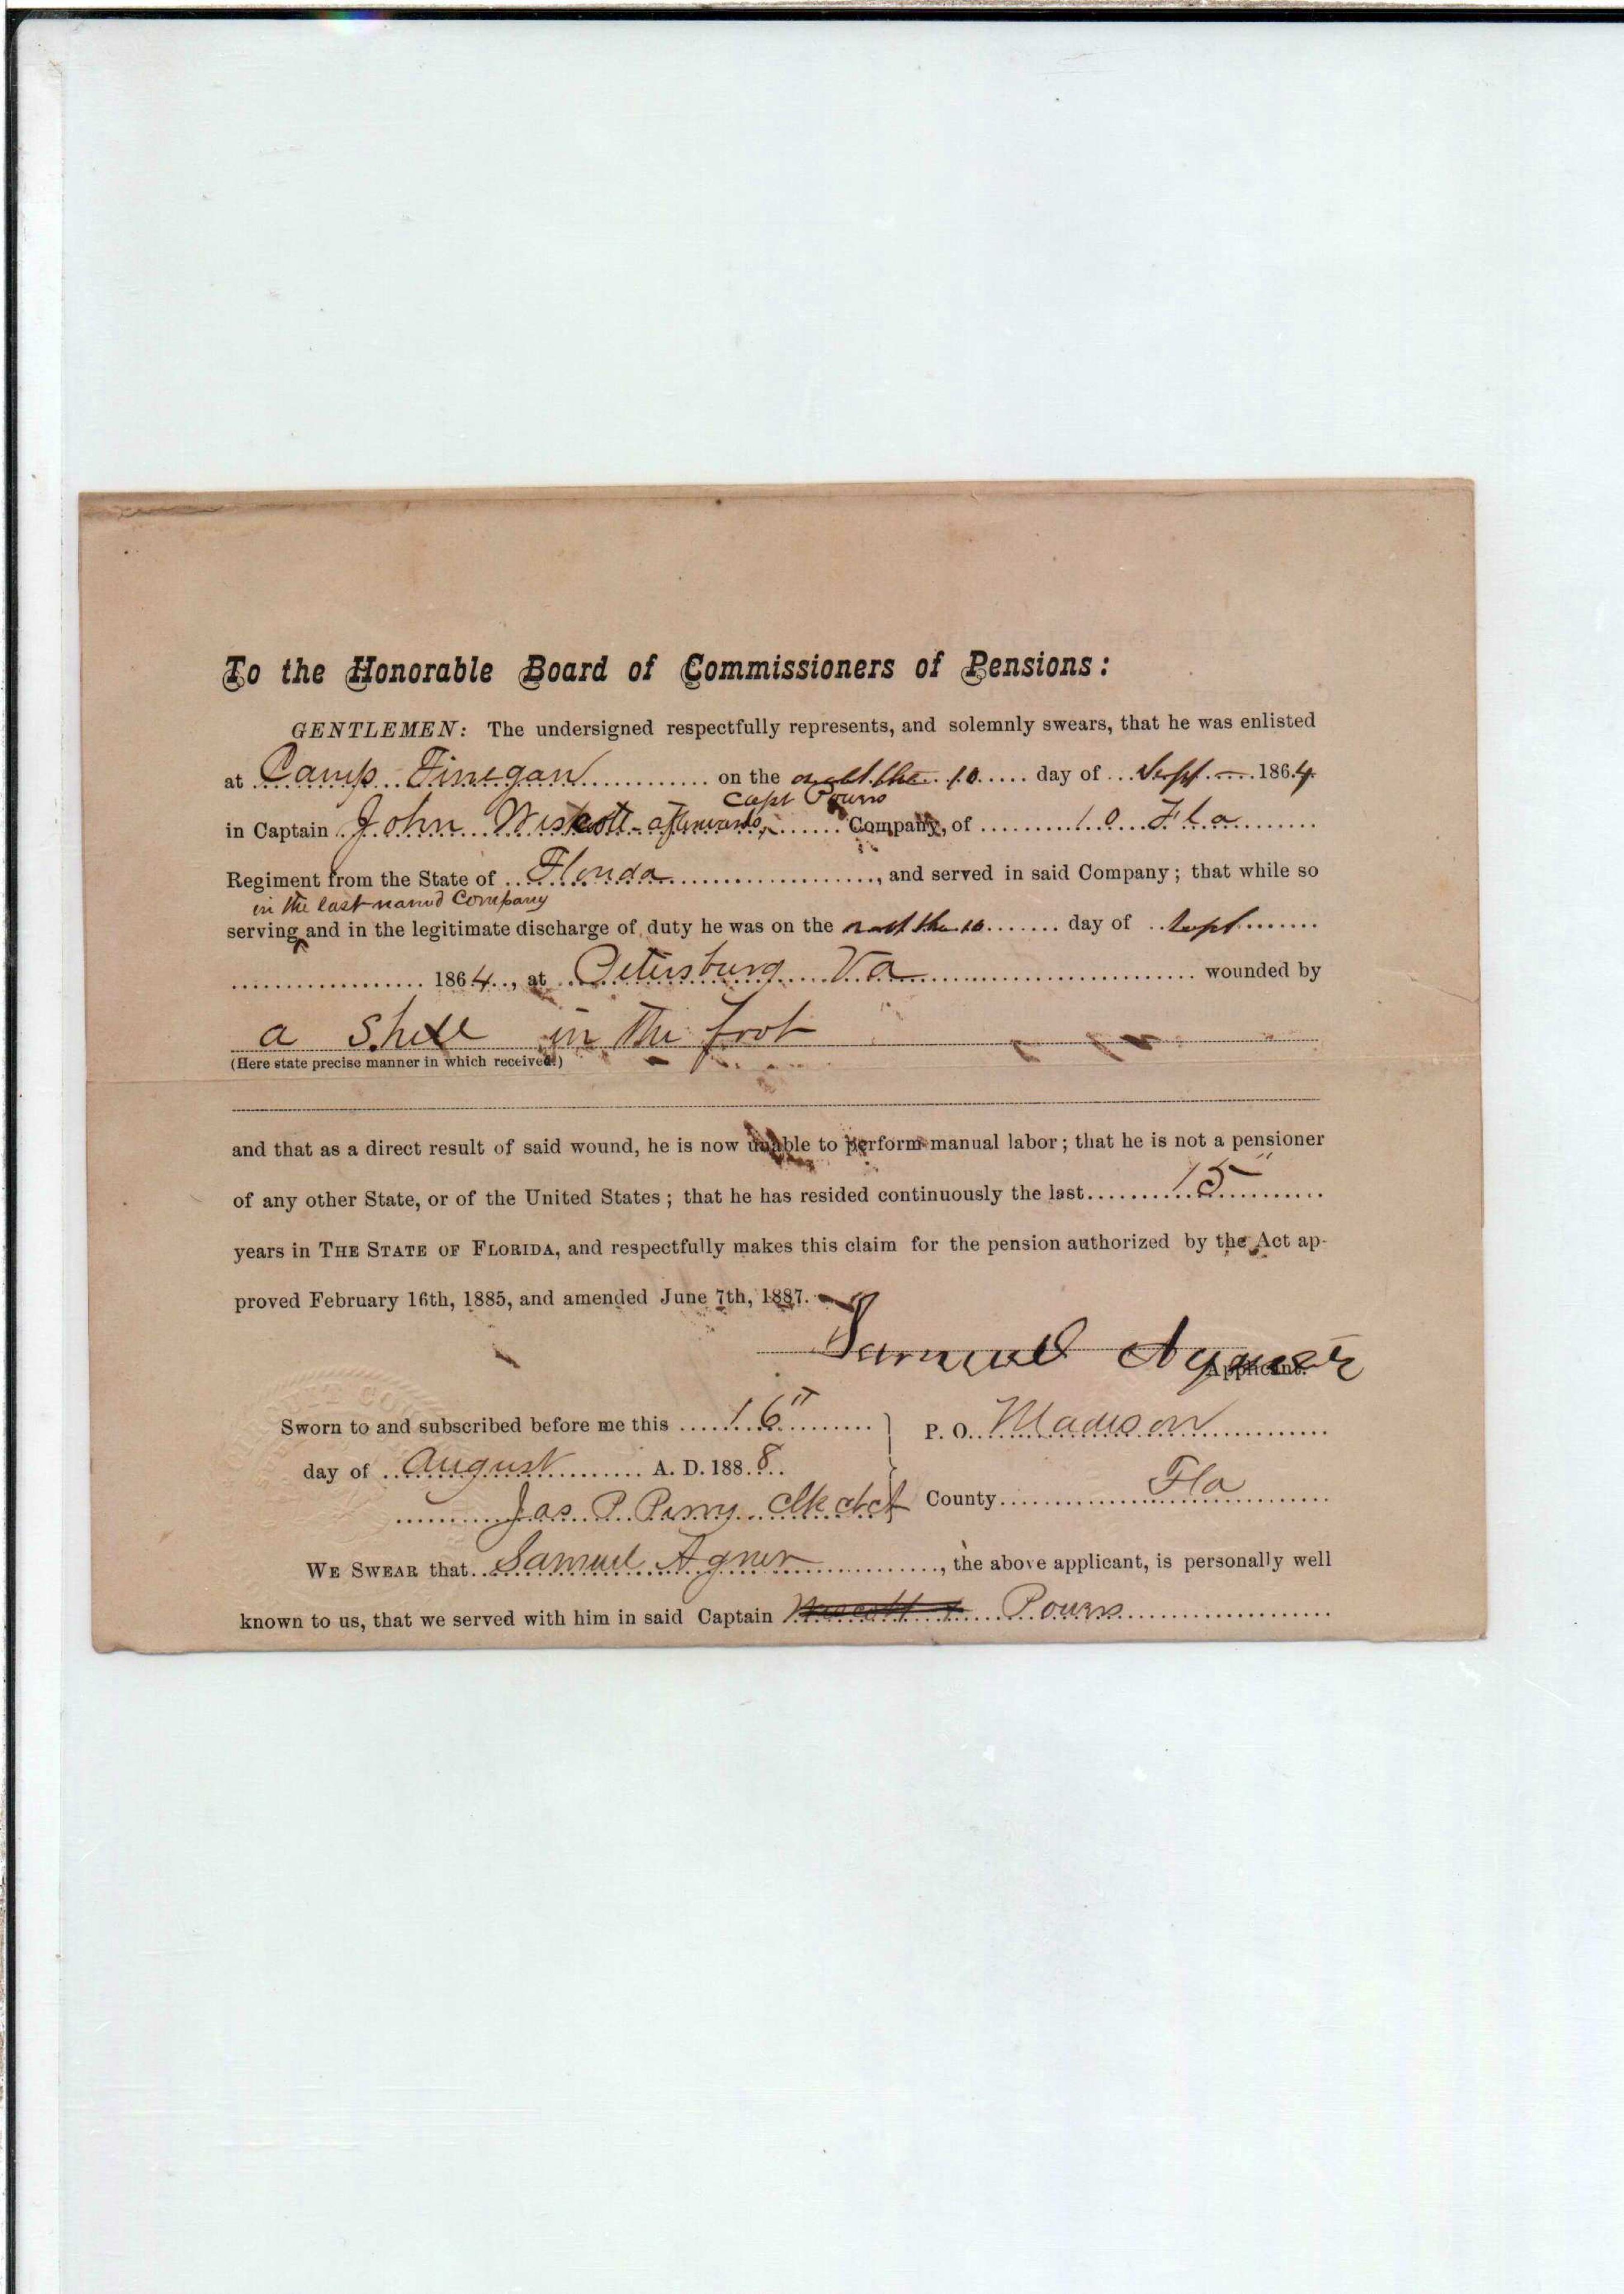 To the Honorable Board of Commissioners of Pensions:
GENTLEMEN: The undersigned respectfully represents, and solemnly swears, that he was enlisted
at Camp Finegan on the the 10 day of Sept 1864
Capt Powrs
in Captain John Wescott - afterwards, Company, of 10 Fla
Regiment from the State of Florida, and served in said Company; that while so
in the last named Company
serving and in the legitimate discharge of duty he was on the the 10 day of Sept
1864, at Petersburg Va wounded by
a Shell in the foot
(Here state precise manner in which received.)
and that as a direct result of said wound, he is now unable to perform manual labor; that he is not a pensioner
of any other State, or of the United States; that he has resided continuously the last 15
years in THE STATE OF FLORIDA, and respectfully makes this claim for the pension authorized by the Act ap-
proved February 16th, 1885, and amended June 7th, 1887.
Samuel Agner
Applicant.
Sworn to and subscribed before me this 16"
P. O. Madison
day of August A. D. 1888
County Fla
Jas P. Perry Clk Ct Ct
WE SWEAR that Samuel Agner, the above applicant, is personally well
known to us, that we served with him in said Captain Powrs